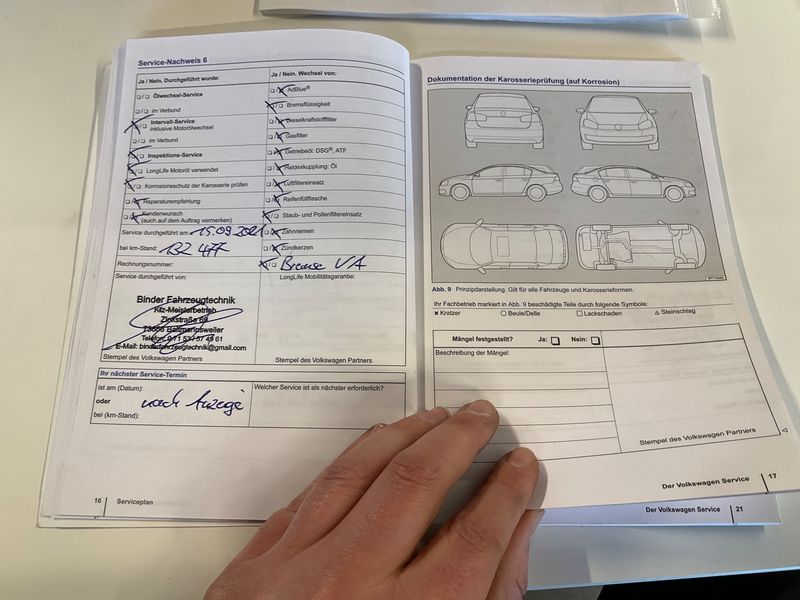 Service-Nachweis 6
Ja / Nein. Durchgeführt wurde:
Ölwechsel-Service
im Verbund
Intervall-Service
inklusive Motorölwechsel
im Verbund
Inspektions-Service
LongLife Motoröl verwendet
Korrosionsschutz der Karosserie prüfen
Reparaturempfehlung
Kundenwunsch
(auch auf dem Auftrag vermerken)
Service durchgeführt am: 15.09.2021
bei km-Stand: 132 477
Rechnungsnummer:
Service durchgeführt von:
Binder Fahrzeugtechnik
Kfz-Meisterbetrieb
Zinkstraße 69
73666 Baltmannsweiler
E-Mail: binderfahrzeugtechnik@gmail.com
Stempel des Volkswagen Partners
Ja / Nein. Wechsel von:
AdBlue®
Bremsflüssigkeit
Dieselkraftstofffilter
Gasfilter
Getriebeöl: DSG®, ATF
Haldexkupplung: Öl
Luftfiltereinsatz
Reifenfüllflasche
Staub- und Pollenfiltereinsatz
Zahnriemen
Zündkerzen
Bremse VA
LongLife Mobilitätsgarantie:
Stempel des Volkswagen Partners
Ihr nächster Service-Termin
ist am (Datum):
oder nach Anzeige
bei (km-Stand):
Welcher Service ist als nächster erforderlich?
16 Serviceplan
Dokumentation der Karosserieprüfung (auf Korrosion)
Abb. 9 Prinzipdarstellung. Gilt für alle Fahrzeuge und Karosserieformen.
Ihr Fachbetrieb markiert in Abb. 9 beschädigte Teile durch folgende Symbole:
× Kratzer ○ Beule/Delle □ Lackschaden △ Steinschlag
Mängel festgestellt? Ja: Nein:
Beschreibung der Mängel:
Stempel des Volkswagen Partners
Der Volkswagen Service 17
Der Volkswagen Service 21